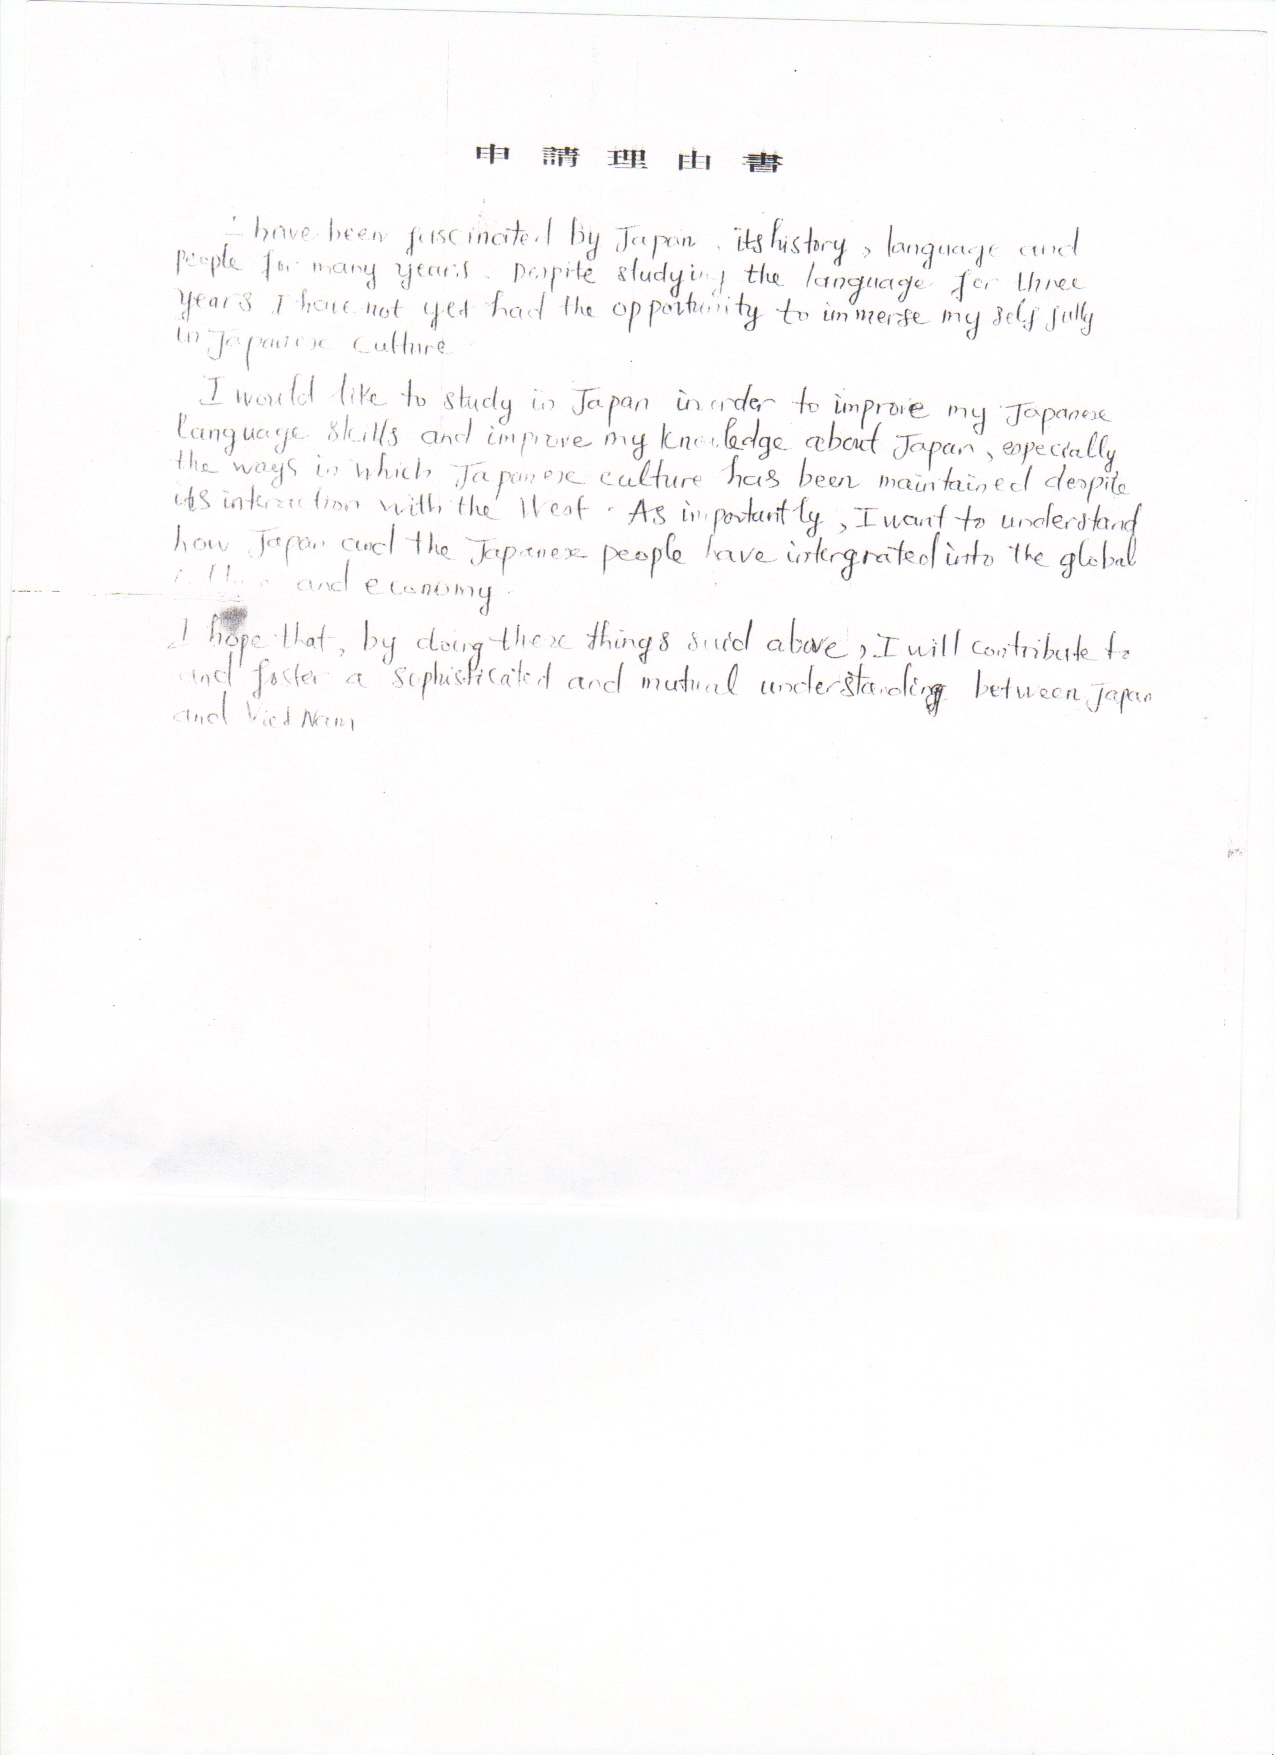 申請理由書
I have been fascinated by Japan, its history, language and
people for many years. Despite studying the language for three
years I have not yet had the opportunity to immerse my self fully
in Japanese culture
I would like to study in Japan in order to improve my Japanese
language skills and improve my knowledge about Japan, especially
the ways in which Japanese culture has been maintained despite
its interaction with the West. As importantly, I want to understand
how Japan and the Japanese people have intergrated into the global
and economy.
I hope that, by doing these things said above, I will contribute to
and foster a sophisticated and mutual understanding between Japan
and Viet Nam